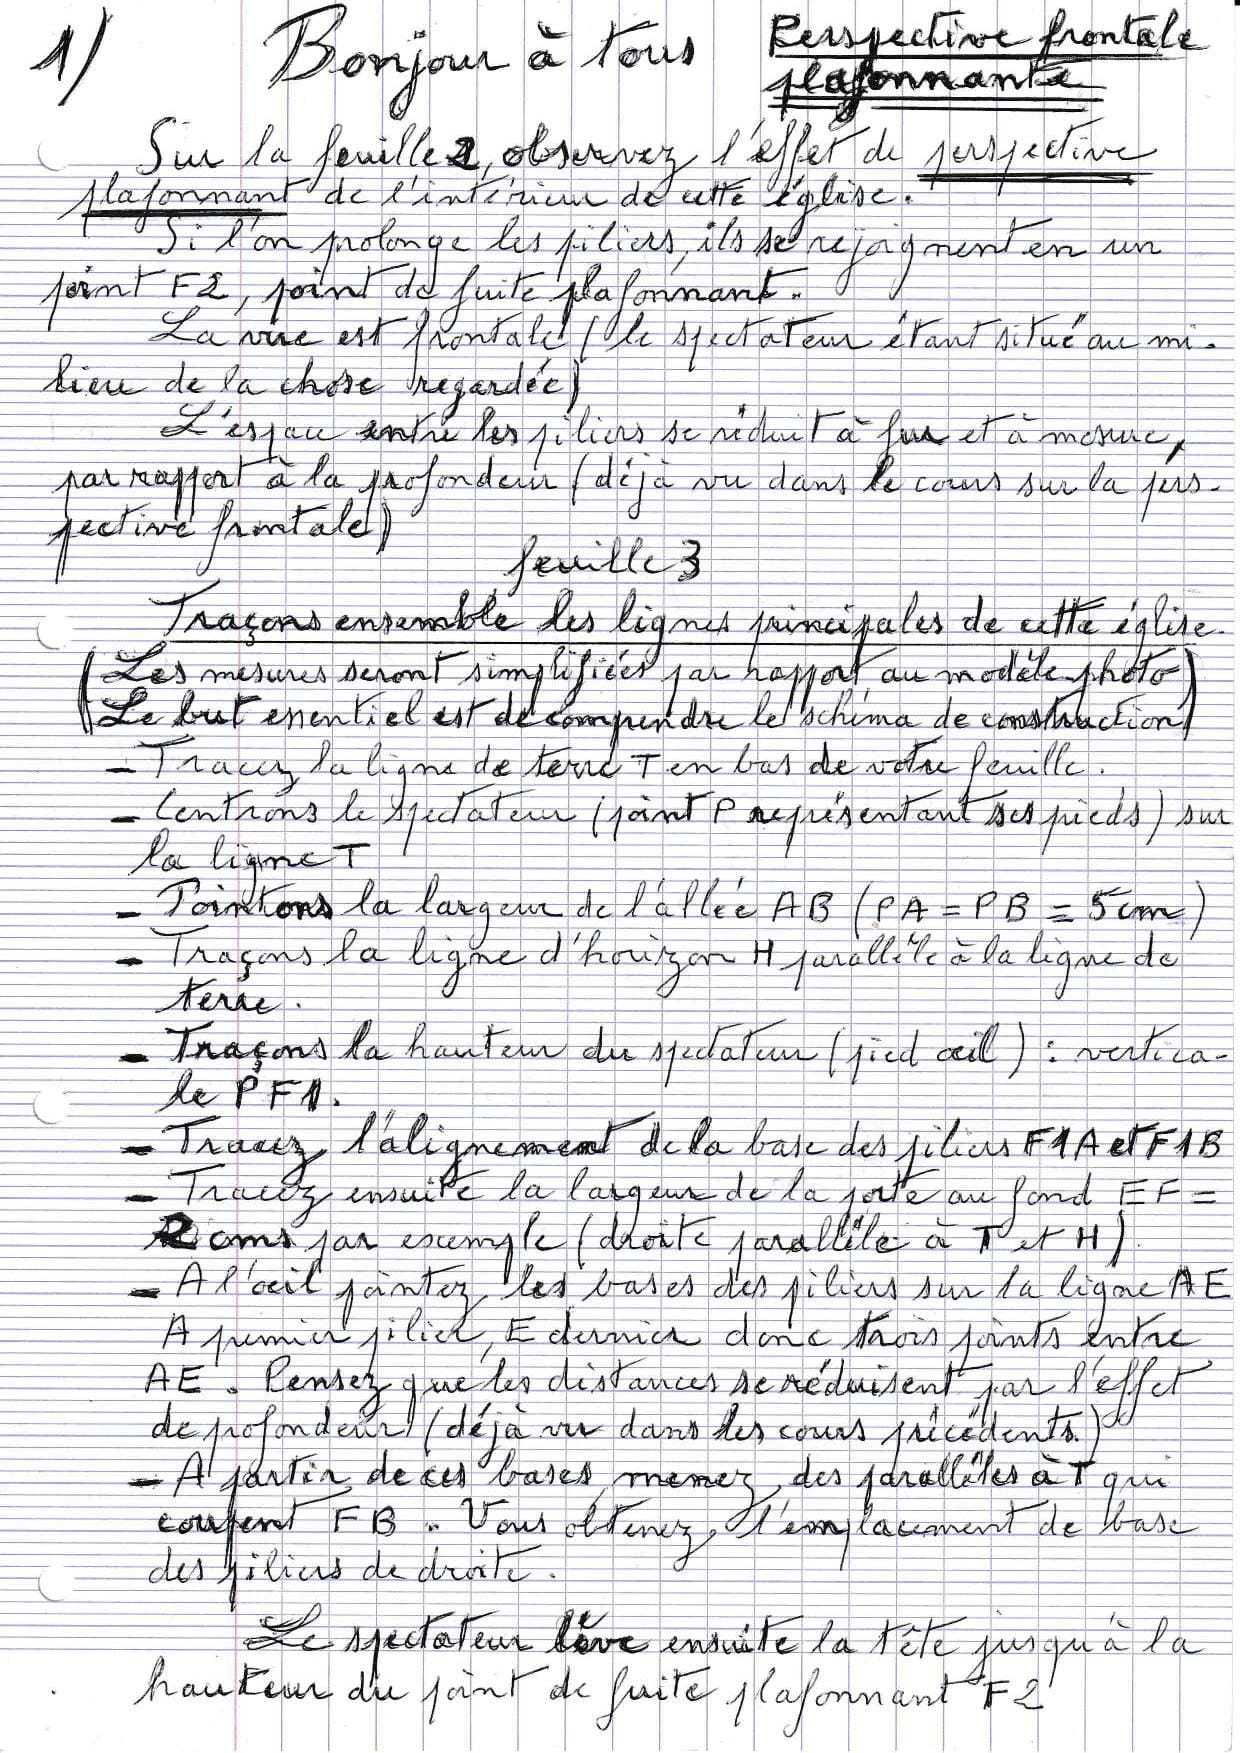 1) Bonjour à tous Perspective frontale
plafonnante
Sur la feuille 2, observez l'effet de perspective
plafonnant de l'intérieur de cette église.
Si l'on prolonge les piliers, ils se rejoignent en un
point F2, point de fuite plafonnant.
La vue est frontale (le spectateur étant situé au mi-
lieu de la chose regardée)
L'espace entre les piliers se réduit à fur et à mesure,
par rapport à la profondeur (déjà vu dans le cours sur la pers-
pective frontale)
feuille 3
Traçons ensemble les lignes principales de cette église.
(Les mesures seront simplifiées par rapport au modèle photo)
(Le but essentiel est de comprendre le schéma de construction)
- Tracez la ligne de terre T en bas de votre feuille.
- Centrons le spectateur (point P représentant ses pieds) sur
la ligne T
- Pointons la largeur de l'allée AB (PA = PB = 5cm)
- Traçons la ligne d'horizon H parallèle à la ligne de
terre.
- Traçons la hauteur du spectateur (pied œil) : vertica-
le PF1.
- Tracez l'alignement de la base des piliers F1A et F1B
- Tracez ensuite la largeur de la porte au fond EF =
2 cms par exemple (droite parallèle à T et H).
- A l'œil pointez les bases des piliers sur la ligne AE
A premier pilier, E dernier donc trois points entre
AE. Pensez que les distances se réduisent par l'effet
de profondeur (déjà vu dans les cours précédents.)
- A partir de ces bases, menez des parallèles à T qui
coupent FB. Vous obtenez l'emplacement de base
des piliers de droite.
Le spectateur lève ensuite la tête jusqu'à la
hauteur du point de fuite plafonnant F2